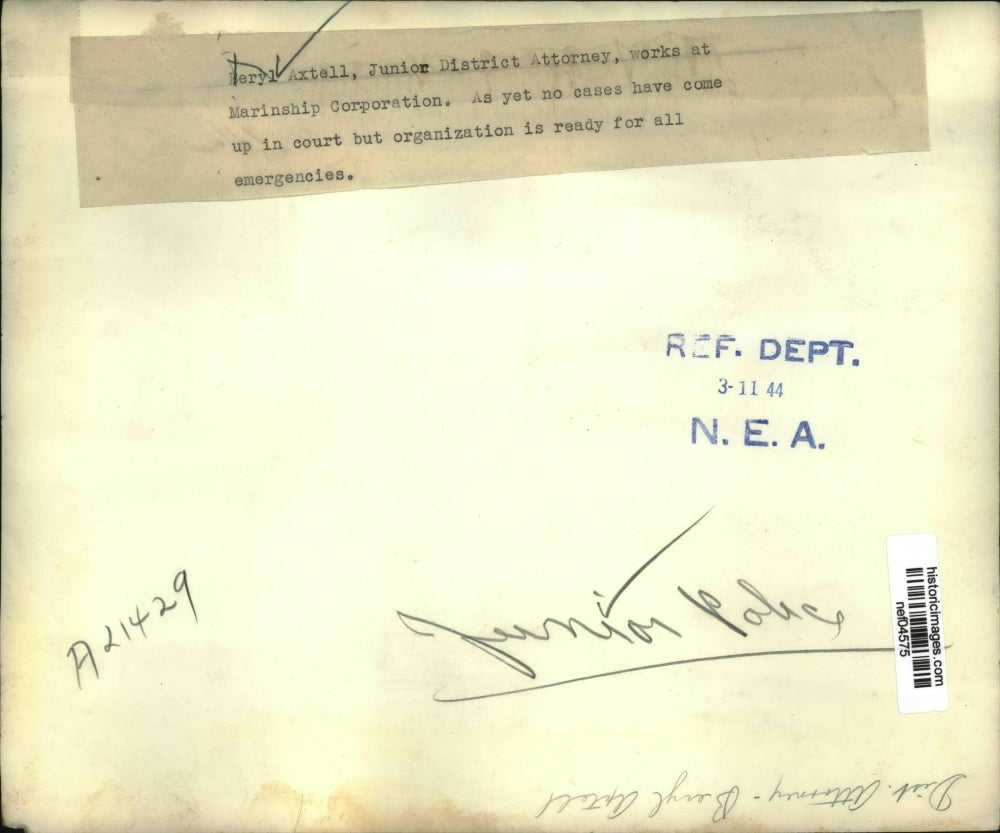 Beryl Axtell, Junior District Attorney, works at
Marinship Corporation. As yet no cases have come
up in court but organization is ready for all
emergencies.
REF. DEPT.
3-11 44
N. E. A.
A21429
Junior Police
historicimages.com
nef04575
Dist. Attorney - Beryl Axtell